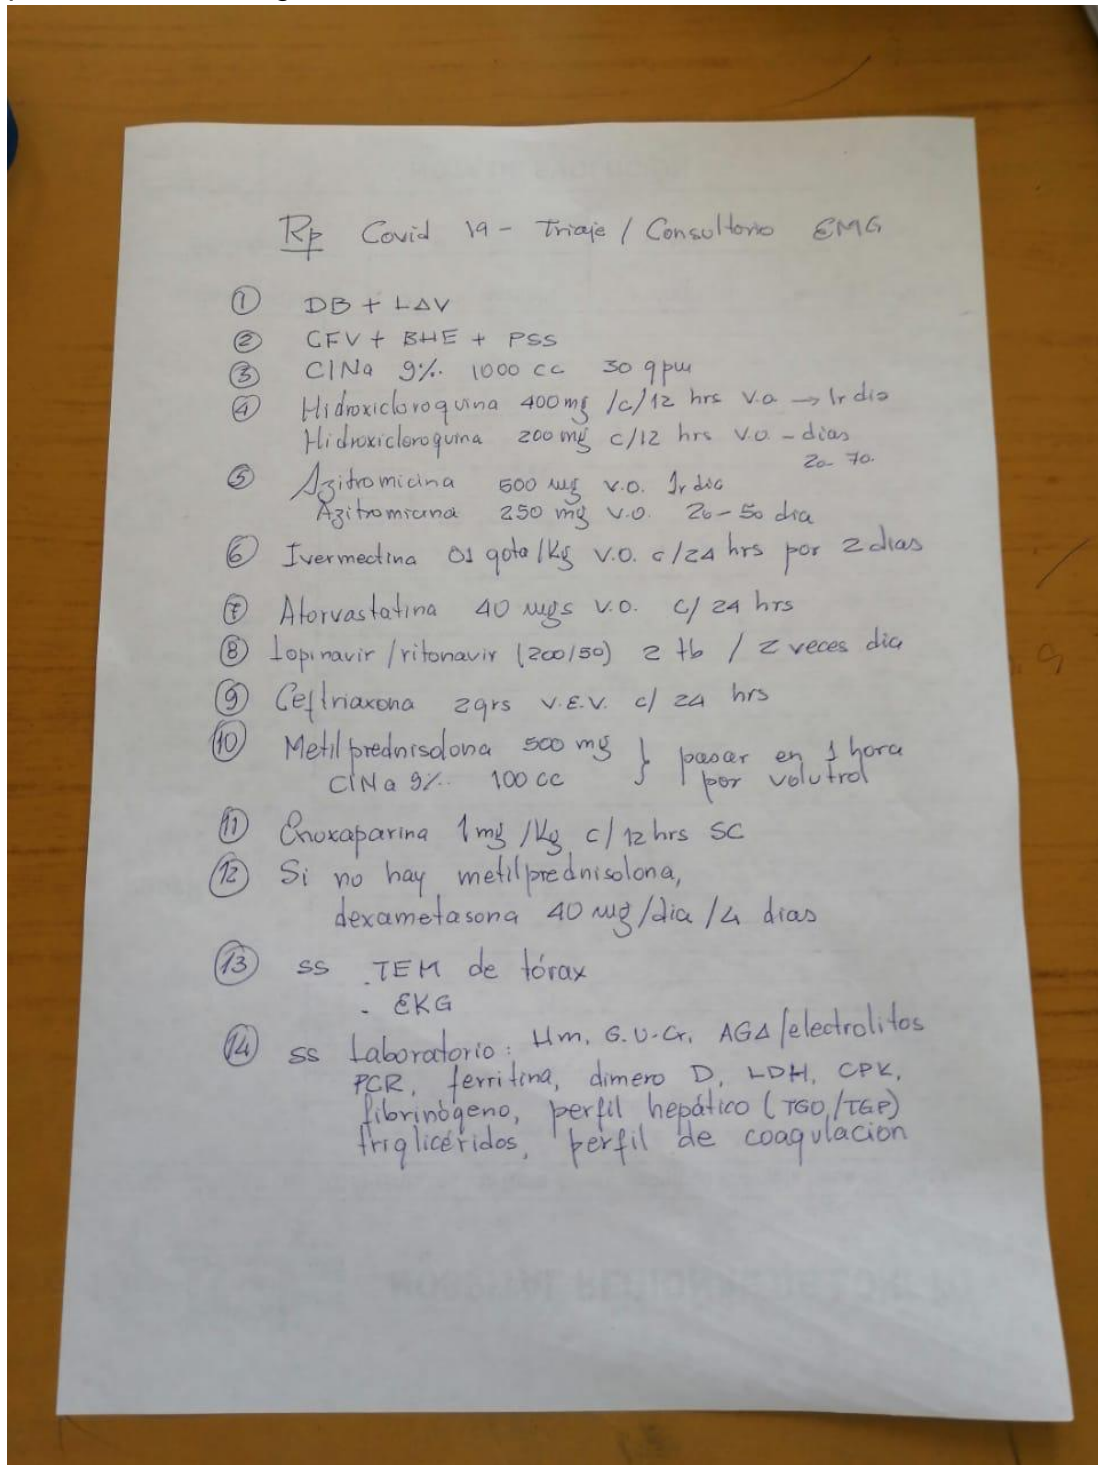 Rp Covid 19 - Triaje / Consultorio EMG
① DB + LAV
② CFV + BHE + PSS
③ ClNa 9%. 1000 cc 30 gpm
④ Hidroxicloroquina 400 mg /c/12 hrs v.o → 1r dia
Hidroxicloroquina 200 mg c/12 hrs v.o. - dias
2o- 7o.
⑤ Azitromicina 500 mg v.o. 1r dia
Azitromicina 250 mg v.o. 2o-5o dia
⑥ Ivermectina 01 gota/Kg v.o. c/24 hrs por 2 dias
⑦ Atorvastatina 40 mgs v.o. c/ 24 hrs
⑧ Lopinavir /ritonavir (200/50) 2 tb / 2 veces dia
⑨ Ceftriaxona 2grs v.E.v. c/ 24 hrs
⑩ Metilprednisolona 500 mg } pasar en 1 hora
ClNa 9%. 100 cc por volutrol
⑪ Enoxaparina 1mg /Kg c/12 hrs SC
⑫ Si no hay metilprednisolona,
dexametasona 40 mg/dia /4 dias
⑬ ss . TEM de tórax
. EKG
⑭ ss Laboratorio: Hm, G.U.Cr, AGA/electrolitos
PCR, ferritina, dimero D, LDH, CPK,
fibrinógeno, perfil hepático (TGO/TGP)
triglicéridos, perfil de coagulacion